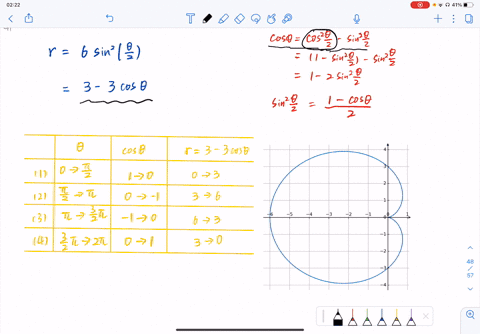 02:22
41%
r = 6 sin²(θ/2)
= 3 - 3 cosθ
cosθ = cos²θ/2 - sin²θ/2
= (1 - sin²θ/2) - sin²θ/2
= 1 - 2 sin²θ/2
sin²θ/2 = (1 - cosθ)/2
θ cosθ r = 3 - 3 cosθ
(1) 0 → π/2 1 → 0 0 → 3
(2) π/2 → π 0 → -1 3 → 6
(3) π → 3/2 π -1 → 0 6 → 3
(4) 3/2 π → 2π 0 → 1 3 → 0
4
3
2
1
-6 -5 -4 -3 -2 -1 0 1
-1
-2
-3
-4
48
57